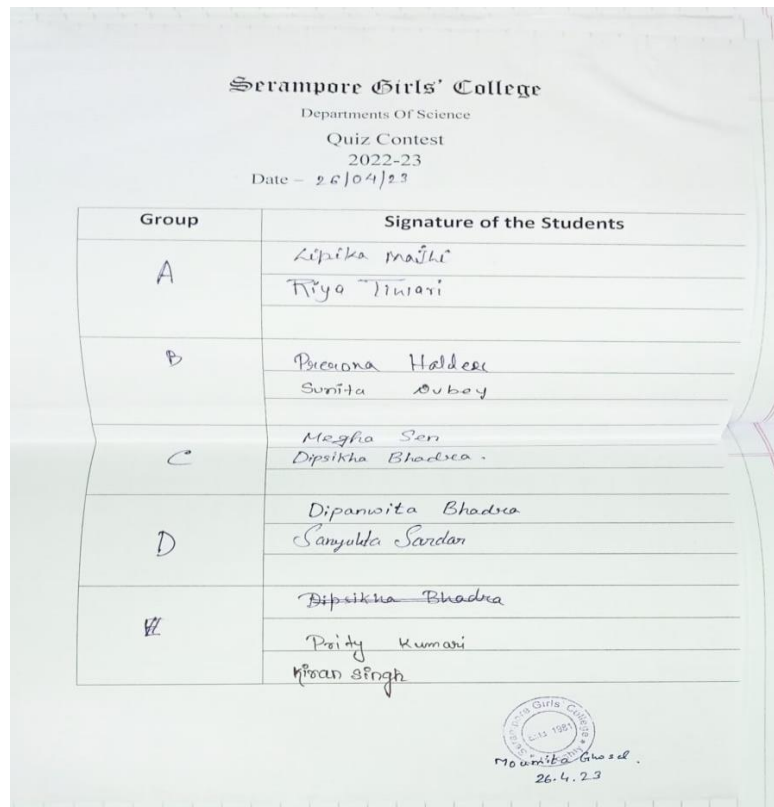 Serampore Girls' College
Departments Of Science
Quiz Contest
2022-23
Date – 26/04/23
Group Signature of the Students
A Lipika Majhi
Riya Tiwari
B Prerona Halder
Sunita Dubey
Megha Sen
C Dipsikha Bhadra.
Dipanwita Bhadra
D Sanyukta Sardar
Dipsikha Bhadra
Prity Kumari
Kiran Singh
Serampore Girls' College
Estd. 1981
Moumita Ghosal.
26.4.23